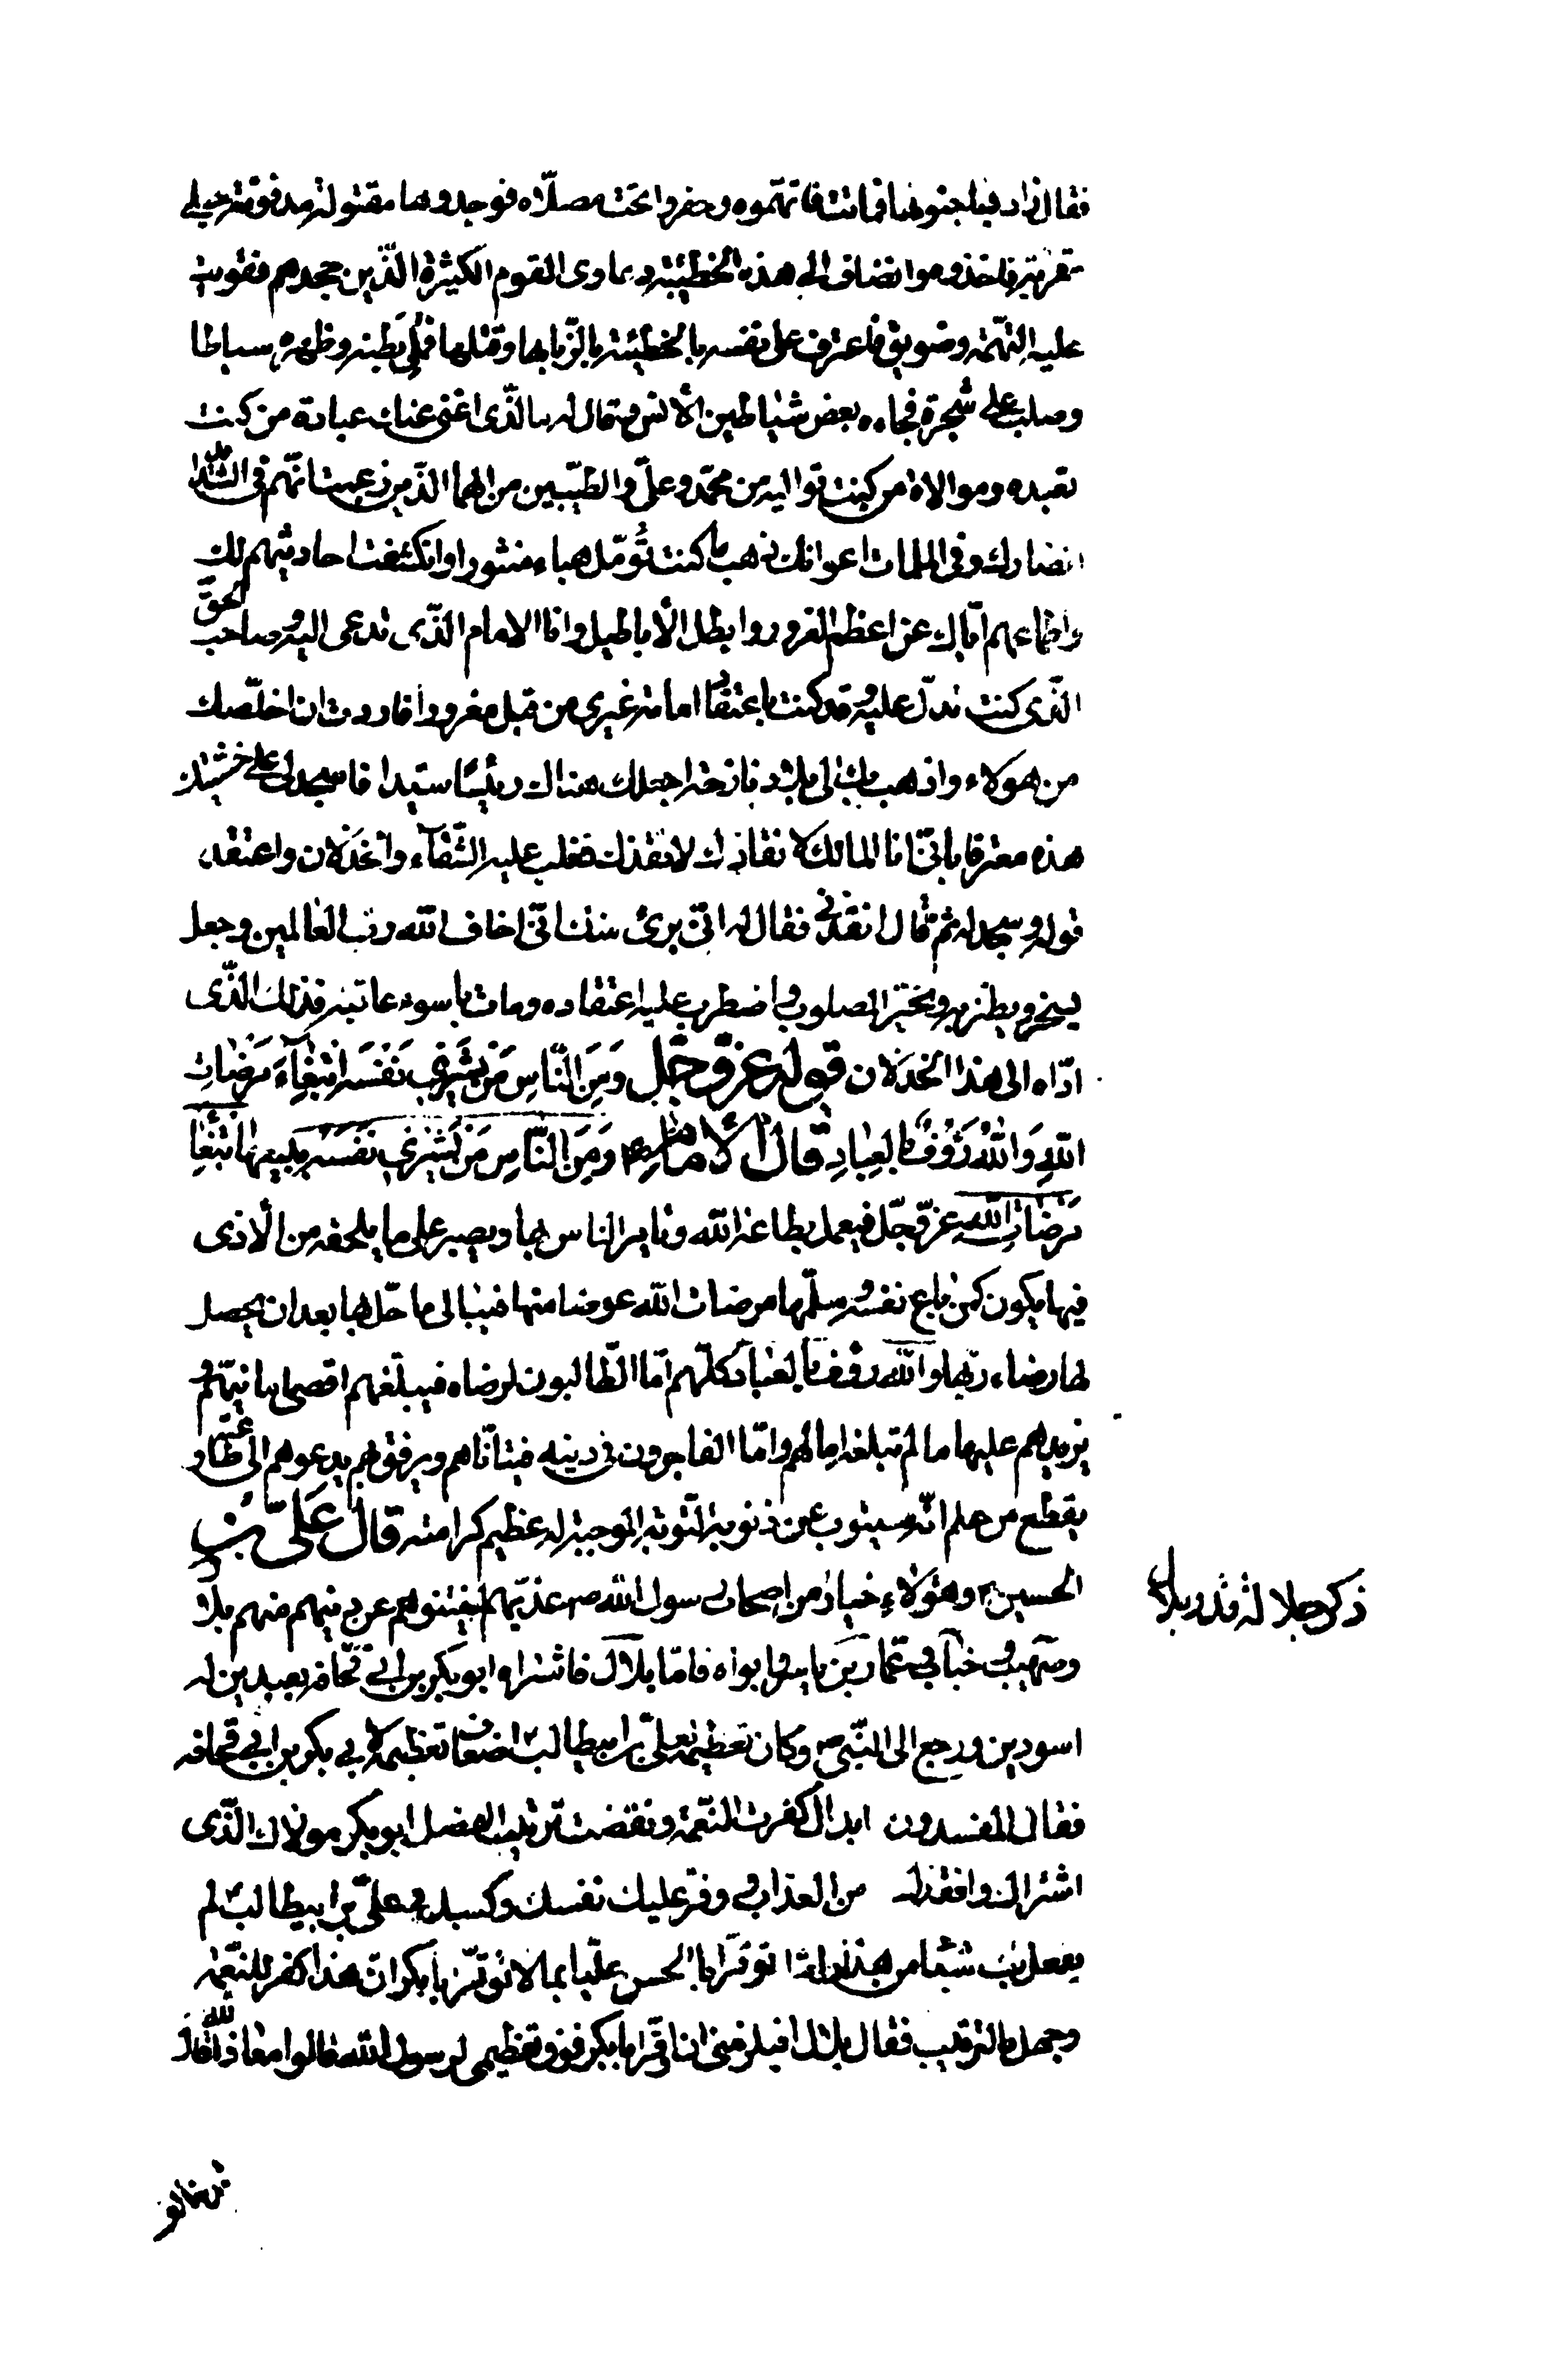 فقال زاد فبلجنوها فماتت فاتهموه وحفروا تحت مصلاه فوجدوها مقتولة مدفونة حبلى
مقربة فاخذوه وانضاف الى هذه الخطيئة دعاوى القوم الكثيرة الذين جحدهم فقويت
عليه التهمة وضويق فاعترف على نفسه بالخطيئة بالزنا بها وقتلها فملئ بطنه وظهره سياطا
وصلب على شجرة فجاءه بعض شياطين الانس وقال له ما الذى اغنى عنك عبادة من كنت
تعبده وموالاة من كنت تواليه من محمد وعلى والطيبين من الهما الذين زعمت انهم فى الشدائد
انصارك وفى الملمات اعوانك ذهب ما كنت تؤمل هباء منثورا وانكشفت احاديثهم لك
واطماعهم اياك من اعظم الغرور وابطل الاباطيل وانا الامام الذى تدعى اليه وصاحب الحق
الذى كنت تدل عليه وقد كنت باعتقاد امامة غيرى من قبل مغرورا فان اردت ان اخلصك
من هؤلاء واذهب بك الى بلاد نازحة اجعلك هناك رئيسا سيدا فاسجد لى على خشبتك
هذه معترفا بانى انا المالك لانقاذك لانقذك فغلب عليه الشقاء والخذلان واعتقد
قوله وسجد له ثم قال انقذنى فقال له انى برئ منك انى اخاف الله رب العالمين وجعل
يسخر ويطنز به وتحير المصلوب واضطرب عليه اعتقاده ومات باسوء عاقبة فذلك الذى
اداه الى هذا الخذلان قوله عز وجل وَمِنَ النَّاسِ مَنْ يَشْرِي نَفْسَهُ ابْتِغَاءَ مَرْضَاتِ
اللهِ وَاللهُ رَؤُفٌ بِالْعِبَادِ قال الامام ع وَمِنَ النَّاسِ مَنْ يَشْرِي نَفْسَهُ يبيعها ابْتِغَاءَ
مَرْضَاتِ اللهِ عز وجل فيعمل بطاعة الله ويأمر الناس بها ويصبر على ما يلحقه من الاذى
فيها يكون كمن باع نفسه وسلمها مرضات الله عوضا منها فلا يبالى ما حل بها بعد ان يحصل
لها رضاء ربها والله رؤف بالعباد كلهم اما الطالبون لرضاه فيبلغهم اقصى امانيهم و
يزيدهم عليها ما لم تبلغه امالهم واما الفاجرون فى دينه فيتأناهم ويرفق بهم يدعوهم الى طاعته و
يقطع من علم انه سيتوب عن ذنوبه التوبة الموجبة له عظيم كرامته قال على بن
الحسين ع وهؤلاء خيار من اصحاب رسول الله ص عذبهم ليفتنوهم عن دينهم منهم بلال
وصهيب وخباب وعمار بن ياسر وابواه فاما بلال فاشتراه ابو بكر بن ابى قحافة بعبدين له
اسودين ورجع الى النبى ص وكان تعظيمه لعلى بن ابيطالب ع اضعاف تعظيمه لابى بكر بن ابى قحافه
فقال المفسدون يا بلال كفرت النعمة ونقضت ترتيب الفضل ابو بكر مولاك الذى
اشتراك وانقذك من العذاب ووفر عليك نفسك وكسبك وعلى بن ابيطالب ع لم
يفعل بك شيئا من هذا وانت توقر ابا الحسن عليا بما لا توقر ابا بكر ان هذا كفر للنعمة
وجهل بالترتيب فقال بلال افيلزمنى ان اوقر ابا بكر فوق تعظيمى لرسول الله قالوا معاذ الله قال
ذكر جلالة قدر بلال